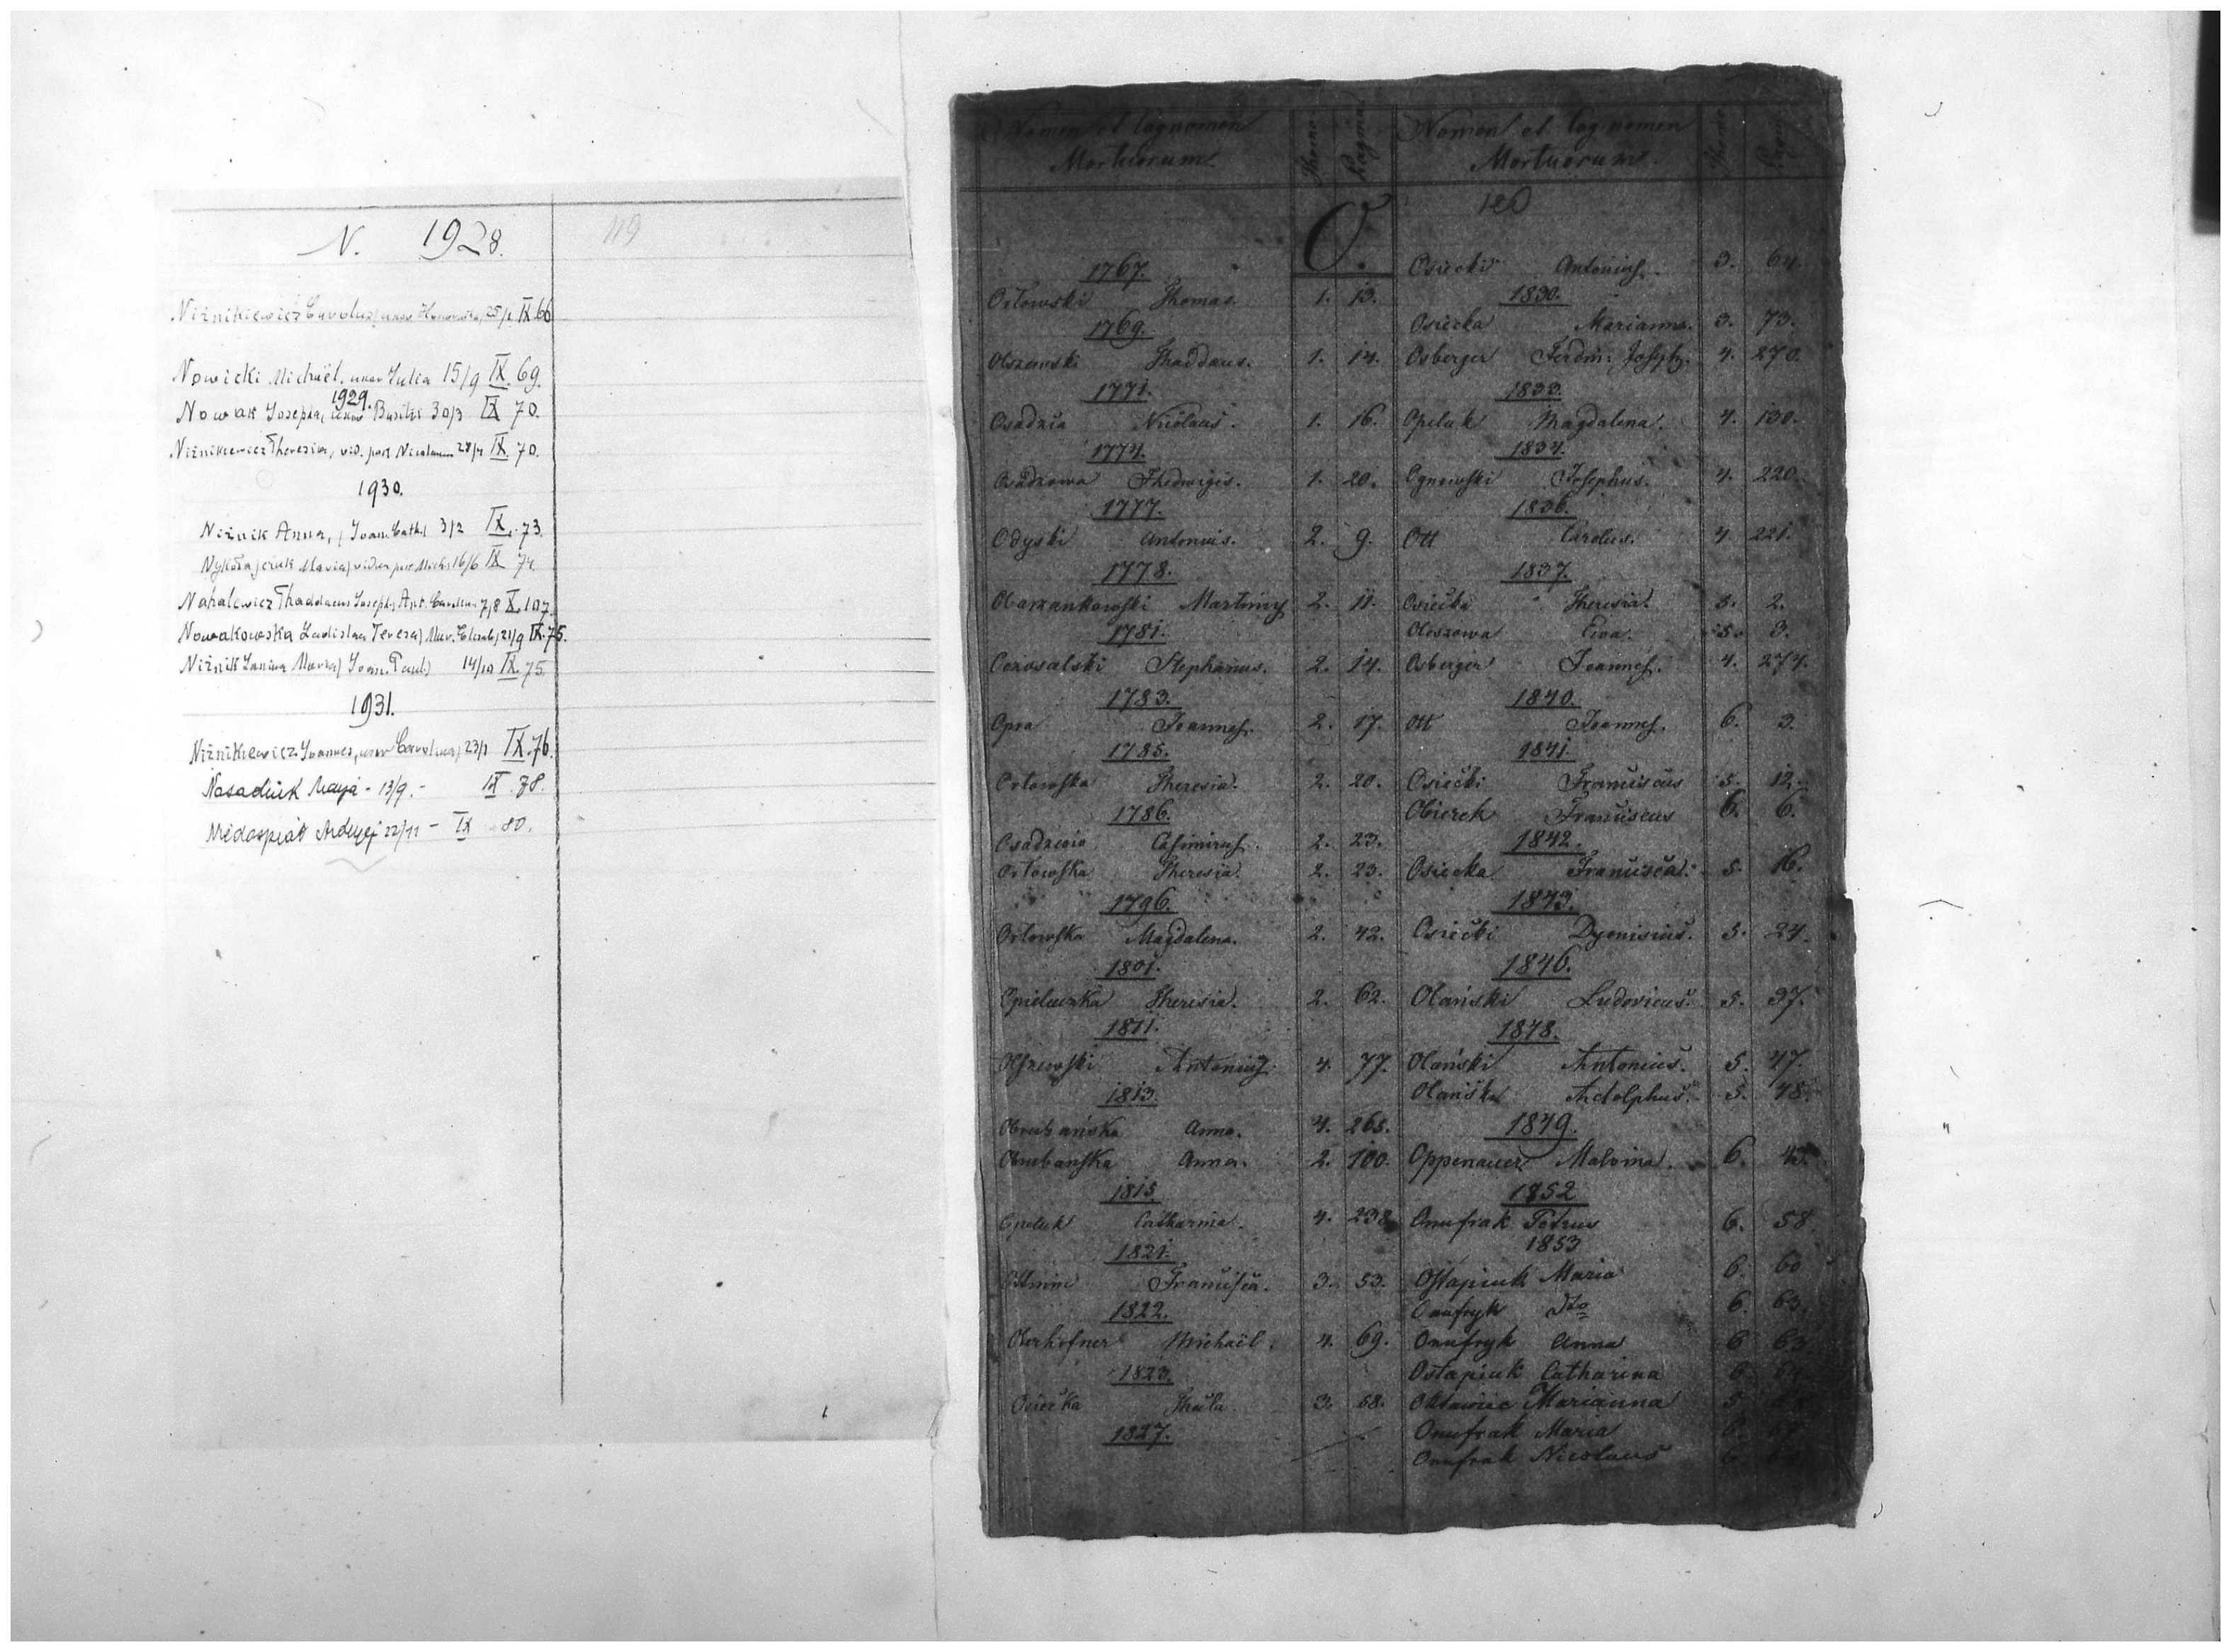 N. 1928.
119
Niżnikiewicz Carolus, uxor 25/1 IX 66
Nowicki Michaël, uxor Julia 15/9 IX. 69.
1929.
Nowak Josepha, Basili 30/3 IX 70.
Niżnikiewicz Theresia, vid. post Nicolaum 28/4 IX. 70.
1930.
Niżnik Anna, Joan. Cath. 3/2 IX. 73
Nykołajczuk Maria, vidua post Mich. 16/6 IX 74.
Nahalewicz Thaddaeus Joseph, Ant. 7/8 X. 107.
Nowakowska Ladislaa Teresa, Mar. Elisab. 21/9 IX. 75.
Niżnik Janina Maria, Joan. Paul. 14/10 IX. 75.
1931.
Niżnikiewicz Joannes, uxor Carolina, 23/1 IX. 76.
Nasadiuk Marja - 13/9. - IX. 78.
Andrzej 22/11 - IX 80.
Nomen et Cognomen Mortuorum.
Thomo
Pagina
Nomen et Cognomen Mortuorum.
Thomo
Pagina
O.
120
1767.
Orłowski Thomas. 1. 13.
1769.
Olszewski Thaddäus. 1. 14.
1771.
Osadzia Nicolaus. 1. 16.
1774.
Osadzowa Hedwigis. 1. 20.
1777.
Odyski Antonius. 2. 9.
1778.
Obarzankowski Martinus 2. 11.
1781.
Stephanus. 2. 14.
1783.
Opra Joannes. 2. 17.
1785.
Orłowska Theresia. 2. 20.
1786.
Casimirus. 2. 23.
Orłowska Theresia. 2. 23.
1796.
Orłowska Magdalena. 2. 42.
1801.
Opieluczka Theresia. 2. 62.
1811.
Olszewski Antonius 4. 77.
1813.
Obrubańska Anna. 4. 265.
Obrubanska Anna. 2. 100.
1815.
Opeluk Catharina. 4. 238
1821.
Francisca. 3. 53.
1822.
Oberhofner Michaël. 4. 69.
1823.
Osiecka Thecla. 3. 58.
1827.
Osiecki Antonius. 3. 64.
1830.
Osiecka Marianna. 3. 73.
Osberger Ferdin: Joseph. 4. 270.
1833.
Opeluk Magdalena. 4. 130.
1834.
Ognowski Josephus. 4. 220.
1836.
Ott Carolus. 4. 221.
1837.
Osiecka Theresia. 5. 2.
Eva. 5. 3.
Osberger Joannes. 4. 274.
1840.
Ott Joannes. 6. 3.
1841.
Osiecki Franciscus 5. 12.
Obierek Franciscus 6. 6.
1842.
Osiecka Francisca. 5. 16.
1843.
Osiecki Dyonisius. 5. 24.
1846.
Olański Ludovicus. 5. 37.
1848.
Olański Antonius. 5. 47.
Olański Adolphus. 5. 48.
1849.
Oppenauer Malvina. 6.
1852
Onufrak Petrus 6. 58
1853
Ostapiuk Maria 6. 60
Onufryk Dto 6. 63.
Onufryk Anna 6 63
Ostapiuk Catharina 6
Marianna 5
Onufrak Maria 6
Onufrak Nicolaus 6